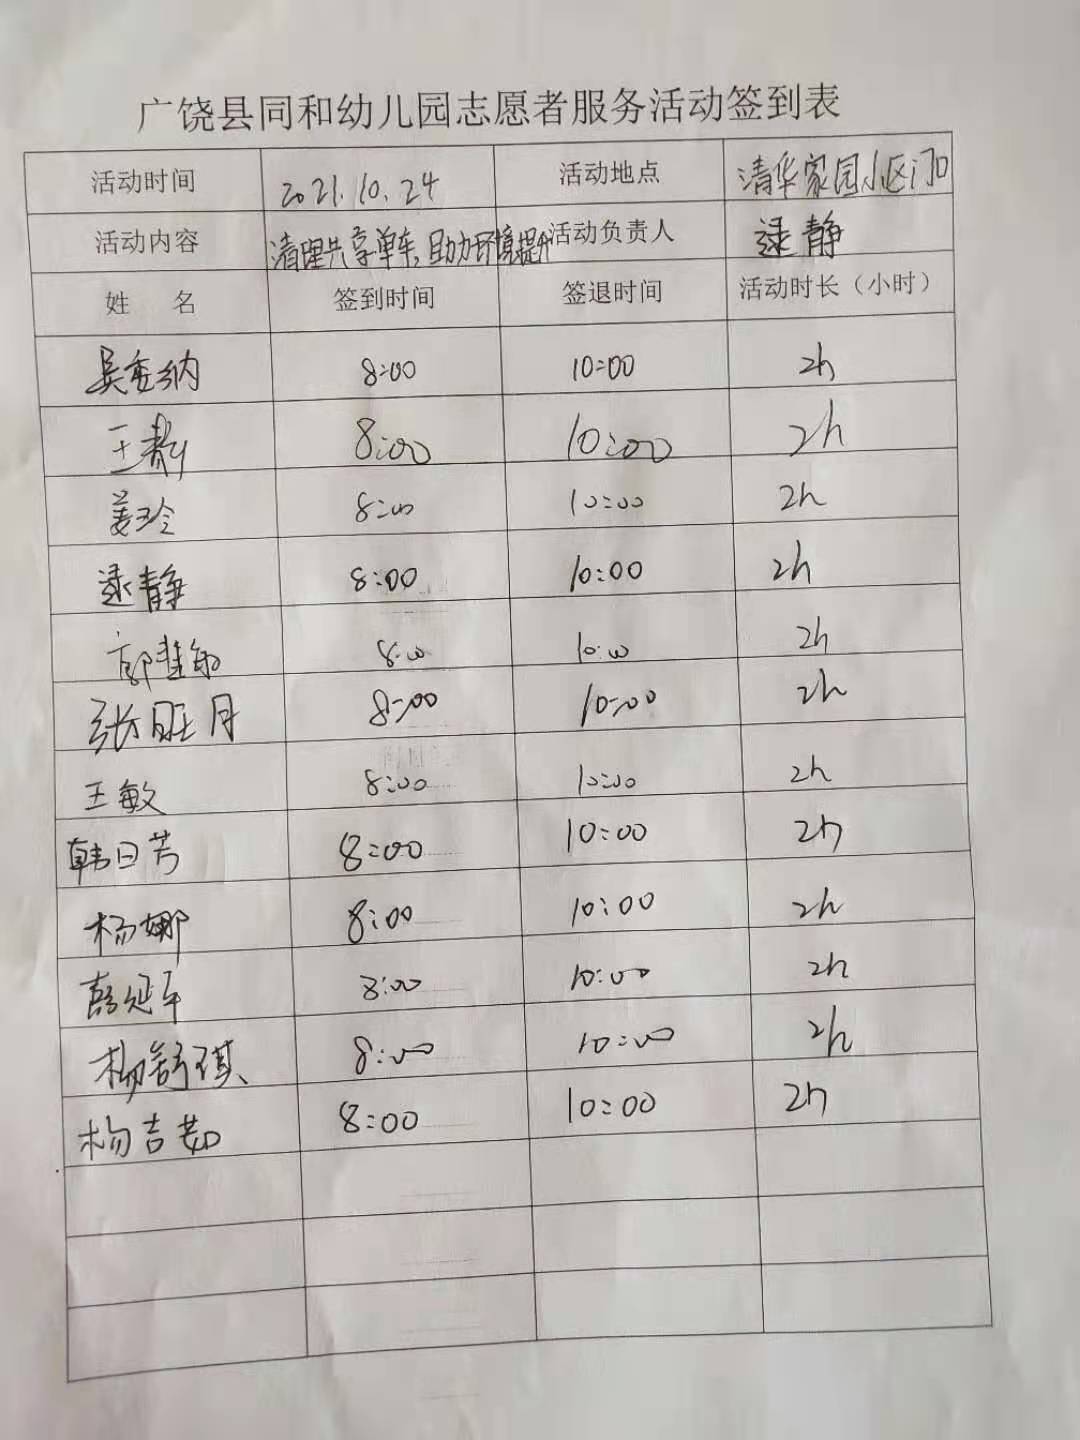 广饶县同和幼儿园志愿者服务活动签到表
活动时间 2021.10.24 活动地点 清华家园小区门口
活动内容 清理共享单车,助力环境提升 活动负责人 逯静
姓 名 签到时间 签退时间 活动时长（小时）
吴秀纳 8:00 10:00 2h
王静 8:00 10:00 2h
姜玲 8:00 10:00 2h
逯静 8:00 10:00 2h
郭 8:00 10:00 2h
张旺月 8:00 10:00 2h
王敏 8:00 10:00 2h
韩日芳 8:00 10:00 2h
杨娜 8:00 10:00 2h
延军 8:00 10:00 2h
杨舒琪 8:00 10:00 2h
杨吉茹 8:00 10:00 2h